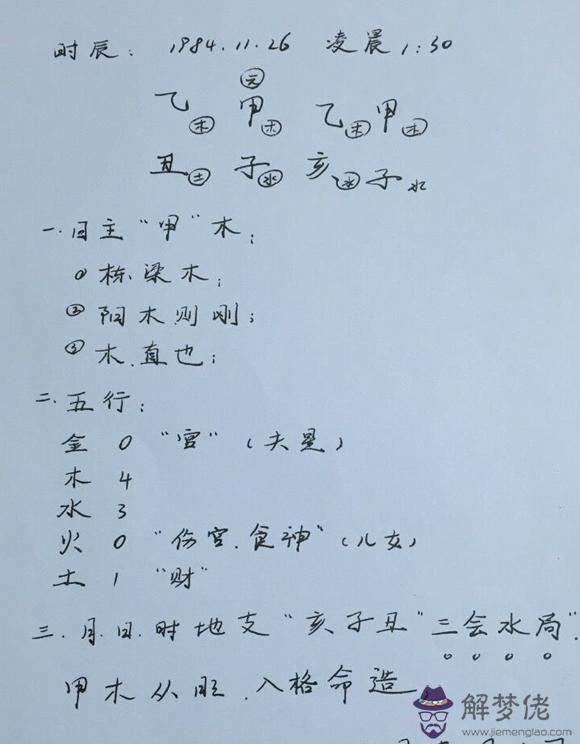 时辰: 1984.11.26 凌晨1:30
元
乙木 甲木 乙木 甲木
丑土 子水 亥水 子水
一.日主"甲"木;
① 栋梁木;
② 阳木则刚;
③ 木.直也;
二.五行:
金 0 "官" (夫星)
木 4
水 3
火 0 "伤官.食神" (儿女)
土 1 "财"
三.月.日.时地支"亥子丑"三会水局".
甲木从旺.入格命造
解梦佬
www.jiemenglao.com